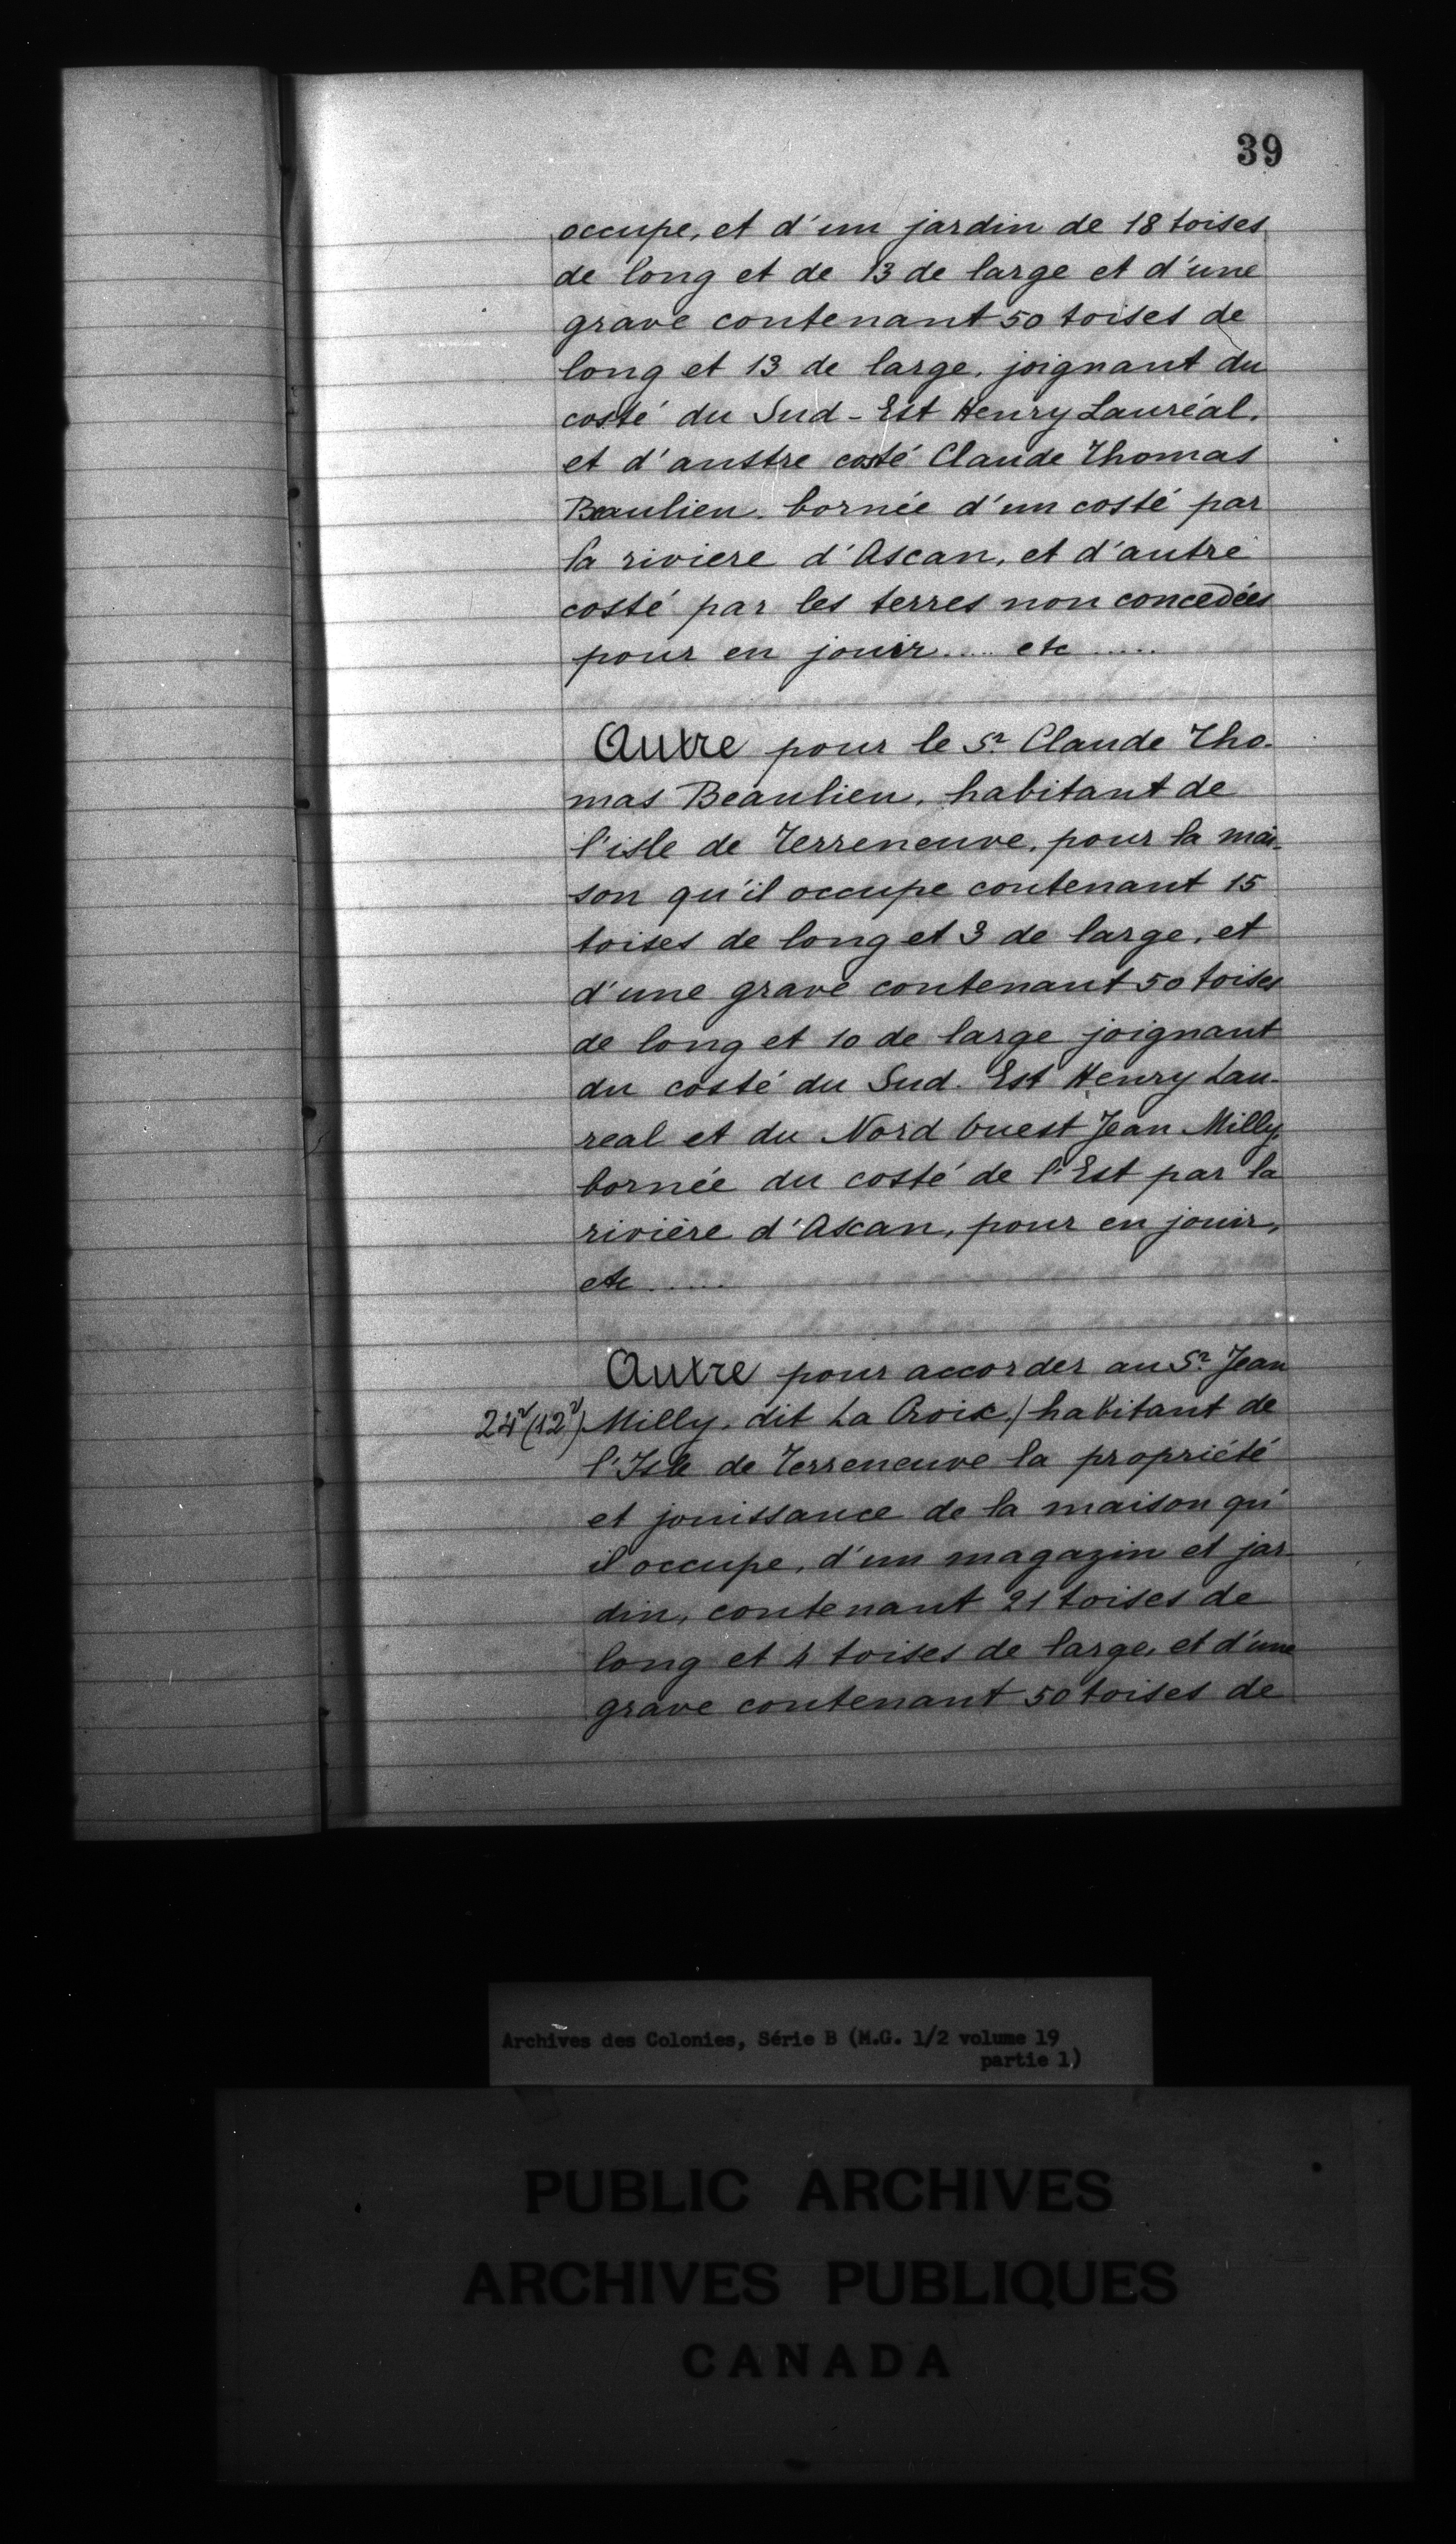 39
occupe, et d'un jardin de 18 toises
de long et de 13 de large et d'une
grave contenant 50 toises de
long et 13 de large, joignant du
costé du Sud-Est Henry Lauréal,
et d'austre costé Claude Thomas
Beaulieu, bornée d'un costé par
la riviere d'Ascan, et d'autre
costé par les terres non concedées
pour en jouir.... etc .....
Autre pour le Sr Claude Tho-
mas Beaulieu, habitant de
l'isle de Terreneuve, pour la mai-
son qu'il occupe contenant 15
toises de long et 3 de large, et
d'une grave contenant 50 toises
de long et 10 de large joignant
du costé du Sud-Est Henry Lau-
real et du Nord Ouest Jean Milly,
bornée du costé de l'Est par la
rivière d'Ascan, pour en jouir,
etc .....
Autre pour accorder au Sr Jean
24v (12v) Milly, dit La Croix / habitant de
l'Isle de Terreneuve la propriété
et jouissance de la maison qu'
il occupe, d'un magazin et jar-
din, contenant 21 toises de
long et 4 toises de large, et d'une
grave contenant 50 toises de
Archives des Colonies, Série B (M.G. 1/2 volume 19
partie 1)
PUBLIC ARCHIVES
ARCHIVES PUBLIQUES
CANADA